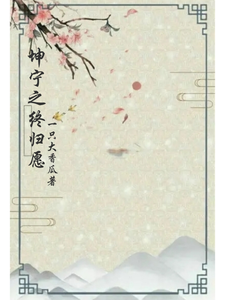 坤宁之终归愿
一只大香瓜著